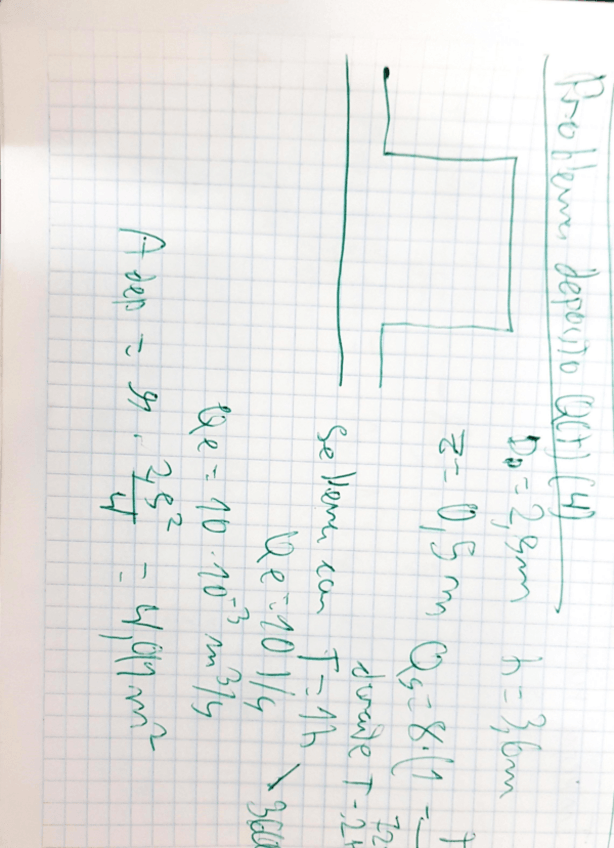 Problema deposito Q(t) (4)
D0 = 2,5m h = 3,6m
z = 0,5 m Qs = 8·(1 -
durante T = 2h
Se llena con T = 1h
Qe = 10 l/s
Qe = 10·10⁻³ m³/s
A dep = π · 2,5²/4 = 4,91 m²